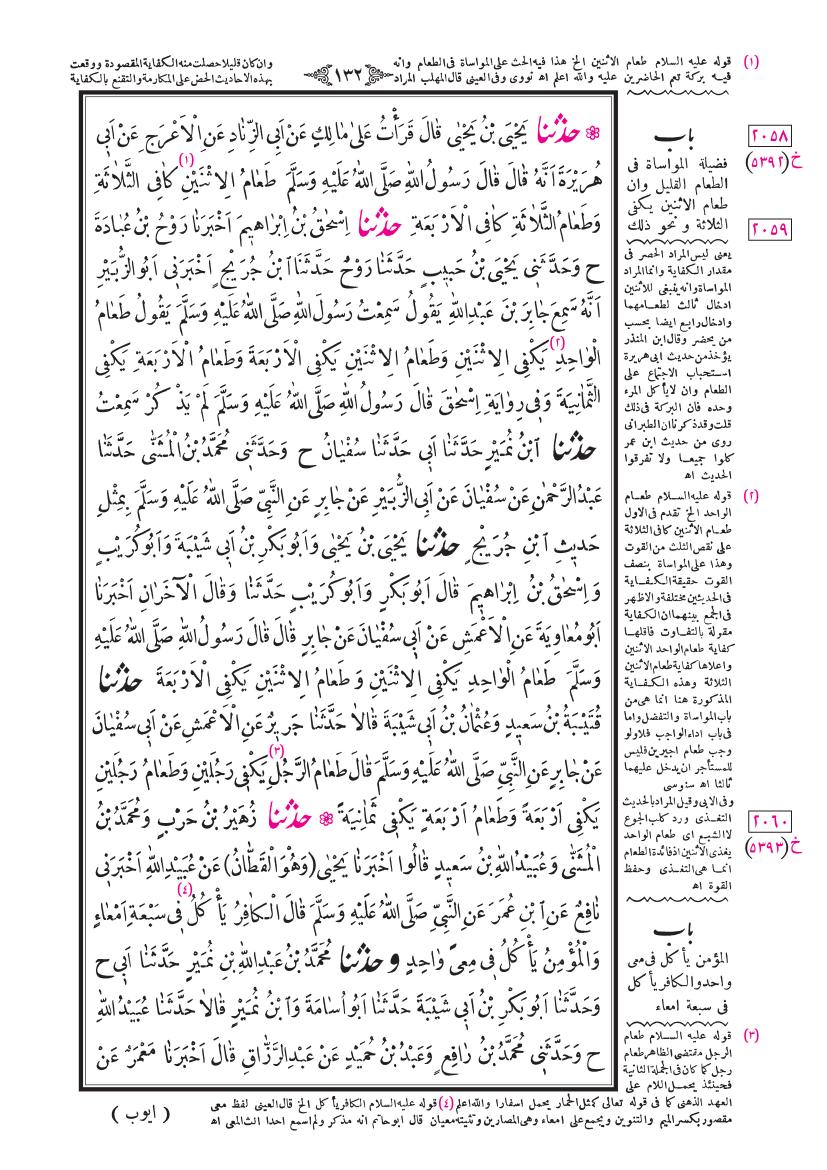 (١) قوله عليه السلام طعام الاثنين الخ هذا فيه الحث على المواساة فى الطعام وانه
فيه بركة تعم الحاضرين عليه والله اعلم اه نووى وفى العينى قال المهلب المراد
﴿١٣٢﴾
وان كان قليلا حصلت منه الكفاية المقصودة ووقعت
بهذه الاحاديث الحض على المكارمة والتقنع بالكفاية
❁ حَدَّثَنَا يَحْيَى بْنُ يَحْيٰى قَالَ قَرَأْتُ عَلىٰ مَالِكٍ عَنْ اَبِى الزِّنَادِ عَنِ الْاَعْرَجِ عَنْ اَبى
هُرَيْرَةَ اَنَّهُ قَالَ قَالَ رَسُولُ اللهِ صَلَّى اللهُ عَلَيْهِ وَسَلَّمَ طَعَامُ الِاثْنَيْنِ (١) كَافِى الثَّلاٰثَةِ
وَطَعَامُ الثَّلاٰثَةِ كَافِى الْاَرْبَعَةِ حَدَّثَنَا اِسْحٰقُ بْنُ اِبْرَاهِيمَ اَخْبَرَنَا رَوْحُ بْنُ عُبَادَةَ
ح وَحَدَّثَنى يَحْيَى بْنُ حَبيبٍ حَدَّثَنَا رَوْحٌ حَدَّثَنَا ابْنُ جُرَيْجٍ اَخْبَرَنى اَبُو الزُّبَيْرِ
اَنَّهُ سَمِعَ جَابِرَ بْنَ عَبْدِ اللهِ يَقُولُ سَمِعْتُ رَسُولَ اللهِ صَلَّى اللهُ عَلَيْهِ وَسَلَّمَ يَقُولُ طَعَامُ
الْوَاحِدِ (٢) يَكْفِى الِاثْنَيْنِ وَطَعَامُ الِاثْنَيْنِ يَكْفِى الْاَرْبَعَةَ وَطَعَامُ الْاَرْبَعَةِ يَكْفِى
الثَّمَانِيَةَ وَفى رِوَايَةِ اِسْحٰقَ قَالَ رَسُولُ اللهِ صَلَّى اللهُ عَلَيْهِ وَسَلَّمَ لَمْ يَذْكُرْ سَمِعْتُ
حَدَّثَنَا ابْنُ نُمَيْرٍ حَدَّثَنَا اَبى حَدَّثَنَا سُفْيَانُ ح وَحَدَّثَنى مُحَمَّدُ بْنُ الْمُثَنّٰى حَدَّثَنَا
عَبْدُ الرَّحْمٰنِ عَنْ سُفْيَانَ عَنْ اَبِى الزُّبَيْرِ عَنْ جَابِرٍ عَنِ النَّبِىِّ صَلَّى اللهُ عَلَيْهِ وَسَلَّمَ بِمِثْلِ
حَديثِ ابْنِ جُرَيْجٍ حَدَّثَنَا يَحْيَى بْنُ يَحْيٰى وَاَبُو بَكْرِ بْنُ اَبى شَيْبَةَ وَاَبُو كُرَيْبٍ
وَاِسْحٰقُ بْنُ اِبْرَاهيمَ قَالَ اَبُو بَكْرٍ وَاَبُو كُرَيْبٍ حَدَّثَنَا وَقَالَ الْآخَرَانِ اَخْبَرَنَا
اَبُو مُعَاوِيَةَ عَنِ الْاَعْمَشِ عَنْ اَبى سُفْيَانَ عَنْ جَابِرٍ قَالَ قَالَ رَسُولُ اللهِ صَلَّى اللهُ عَلَيْهِ
وَسَلَّمَ طَعَامُ الْوَاحِدِ يَكْفِى الِاثْنَيْنِ وَطَعَامُ الِاثْنَيْنِ يَكْفِى الْاَرْبَعَةَ حَدَّثَنَا
قُتَيْبَةُ بْنُ سَعيدٍ وَعُثْمَانُ بْنُ اَبى شَيْبَةَ قَالَا حَدَّثَنَا جَريرٌ عَنِ الْاَعْمَشِ عَنْ اَبى سُفْيَانَ
عَنْ جَابِرٍ عَنِ النَّبِىِّ صَلَّى اللهُ عَلَيْهِ وَسَلَّمَ قَالَ طَعَامُ الرَّجُلِ (٣) يَكْفى رَجُلَيْنِ وَطَعَامُ رَجُلَيْنِ
يَكْفى اَرْبَعَةً وَطَعَامُ اَرْبَعَةٍ يَكْفى ثَمَانِيَةً ❁ حَدَّثَنَا زُهَيْرُ بْنُ حَرْبٍ وَمُحَمَّدُ بْنُ
الْمُثَنّٰى وَعُبَيْدُ اللهِ بْنُ سَعيدٍ قَالُوا اَخْبَرَنَا يَحْيٰى (وَهُوَ الْقَطَّانُ) عَنْ عُبَيْدِ اللهِ اَخْبَرَنى
نَافِعٌ عَنِ ابْنِ عُمَرَ عَنِ النَّبِىِّ صَلَّى اللهُ عَلَيْهِ وَسَلَّمَ قَالَ الْكَافِرُ (٤) يَأْكُلُ فى سَبْعَةِ اَمْعَاءٍ
وَالْمُؤْمِنُ يَأْكُلُ فى مِعىً وَاحِدٍ وَحَدَّثَنَا مُحَمَّدُ بْنُ عَبْدِ اللهِ بْنِ نُمَيْرٍ حَدَّثَنَا اَبى ح
وَحَدَّثَنَا اَبُو بَكْرِ بْنُ اَبى شَيْبَةَ حَدَّثَنَا اَبُو اُسَامَةَ وَابْنُ نُمَيْرٍ قَالَا حَدَّثَنَا عُبَيْدُ اللهِ
ح وَحَدَّثَنى مُحَمَّدُ بْنُ رَافِعٍ وَعَبْدُ بْنُ حُمَيْدٍ عَنْ عَبْدِ الرَّزَّاقِ قَالَ اَخْبَرَنَا مَعْمَرٌ عَنْ
٢٠٥٨
خ(٥٣٩٢)
٢٠٥٩
٢٠٦٠
خ(٥٣٩٣)
باب
فضيلة المواساة فى
الطعام القليل وان
طعام الاثنين يكفى
الثلاثة و نحو ذلك
يعنى ليس المراد الحصر فى
مقدار الكفاية وانما المراد
المواساة وانه ينبغى للاثنين
ادخال ثالث لطعامهما
وادخال رابع ايضا بحسب
من يحضر وقال ابن المنذر
يؤخذ من حديث ابى هريرة
استحباب الاجتماع على
الطعام وان لا يأكل المرء
وحده فان البركة فى ذلك
قلت وقد ذكرنا ان الطبرانى
روى من حديث ابن عمر
كلوا جميعا ولا تفرقوا
الحديث اه
(٢) قوله عليه السلام طعام
الواحد الخ تقدم فى الاول
طعام الاثنين كافى الثلاثة
على نقص الثلث من القوت
وهذا على المواساة بنصف
القوت حقيقة الكفاية
فى الحديثين مختلفة والاظهر
فى الجمع بينهما ان الكفاية
مقولة بالتفاوت فاقلها
كفاية طعام الواحد الاثنين
واعلاها كفاية طعام الاثنين
الثلاثة وهذه الكفاية
المذكورة هنا انما هى من
باب المواساة والتفضل واما
فى باب اداء الواجب فلا ولو
وجب طعام اجيرين فليس
للمستأجر ان يدخل عليهما
ثالثا اه سنوسى
وفى الابى وقيل المراد بالحديث
التغذى ورد كلب الجوع
لا الشبع اى طعام الواحد
يغذى الاثنين اذ فائدة الطعام
انما هى التغذى وحفظ
القوة اه
باب
المؤمن يأكل فى معى
واحد والكافر يأكل
فى سبعة امعاء
(٣) قوله عليه السلام طعام
الرجل مقتضى الظاهر طعام
رجل كما كان فى الجملة الثانية
فحينئذ يحمل اللام على
العهد الذهنى كما فى قوله تعالى كمثل الحمار يحمل اسفارا والله اعلم (٤) قوله عليه السلام الكافر يأكل الخ قال العينى لفظ معى
مقصور بكسر الميم والتنوين ويجمع على امعاء وهى المصارين وتثنيته معيان قال ابو حاتم انه مذكر ولم اسمع احدا انث المعى اه
( ايوب )